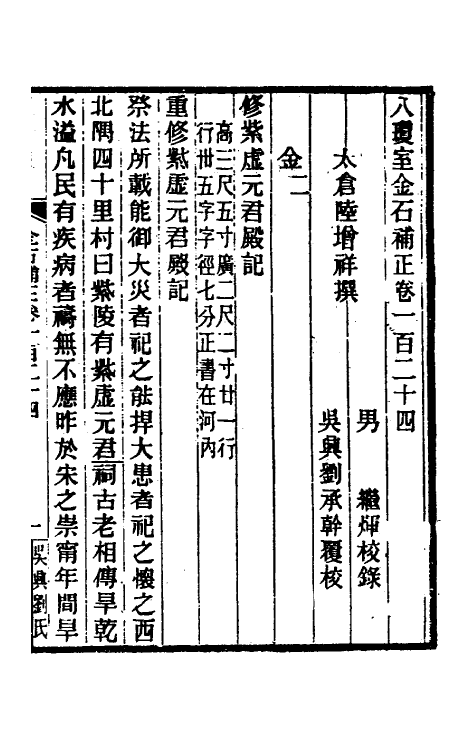 八瓊室金石補正卷一百二十四
男　繼煇校錄
太倉陸增祥撰
吳興劉承幹覆校
金二
修紫虛元君殿記
高三尺五寸廣二尺二寸廿一行
行卅五字字徑七分正書在河內
重修紫虛元君殿記
祭法所載能御大災者祀之能捍大患者祀之懷之西
北隅四十里村曰紫陵有紫虛元君祠古老相傳旱乾
水溢凡民有疾病者禱無不應昨於宋之崇甯年間旱
金石補正卷一百二十四
一
吳興劉氏